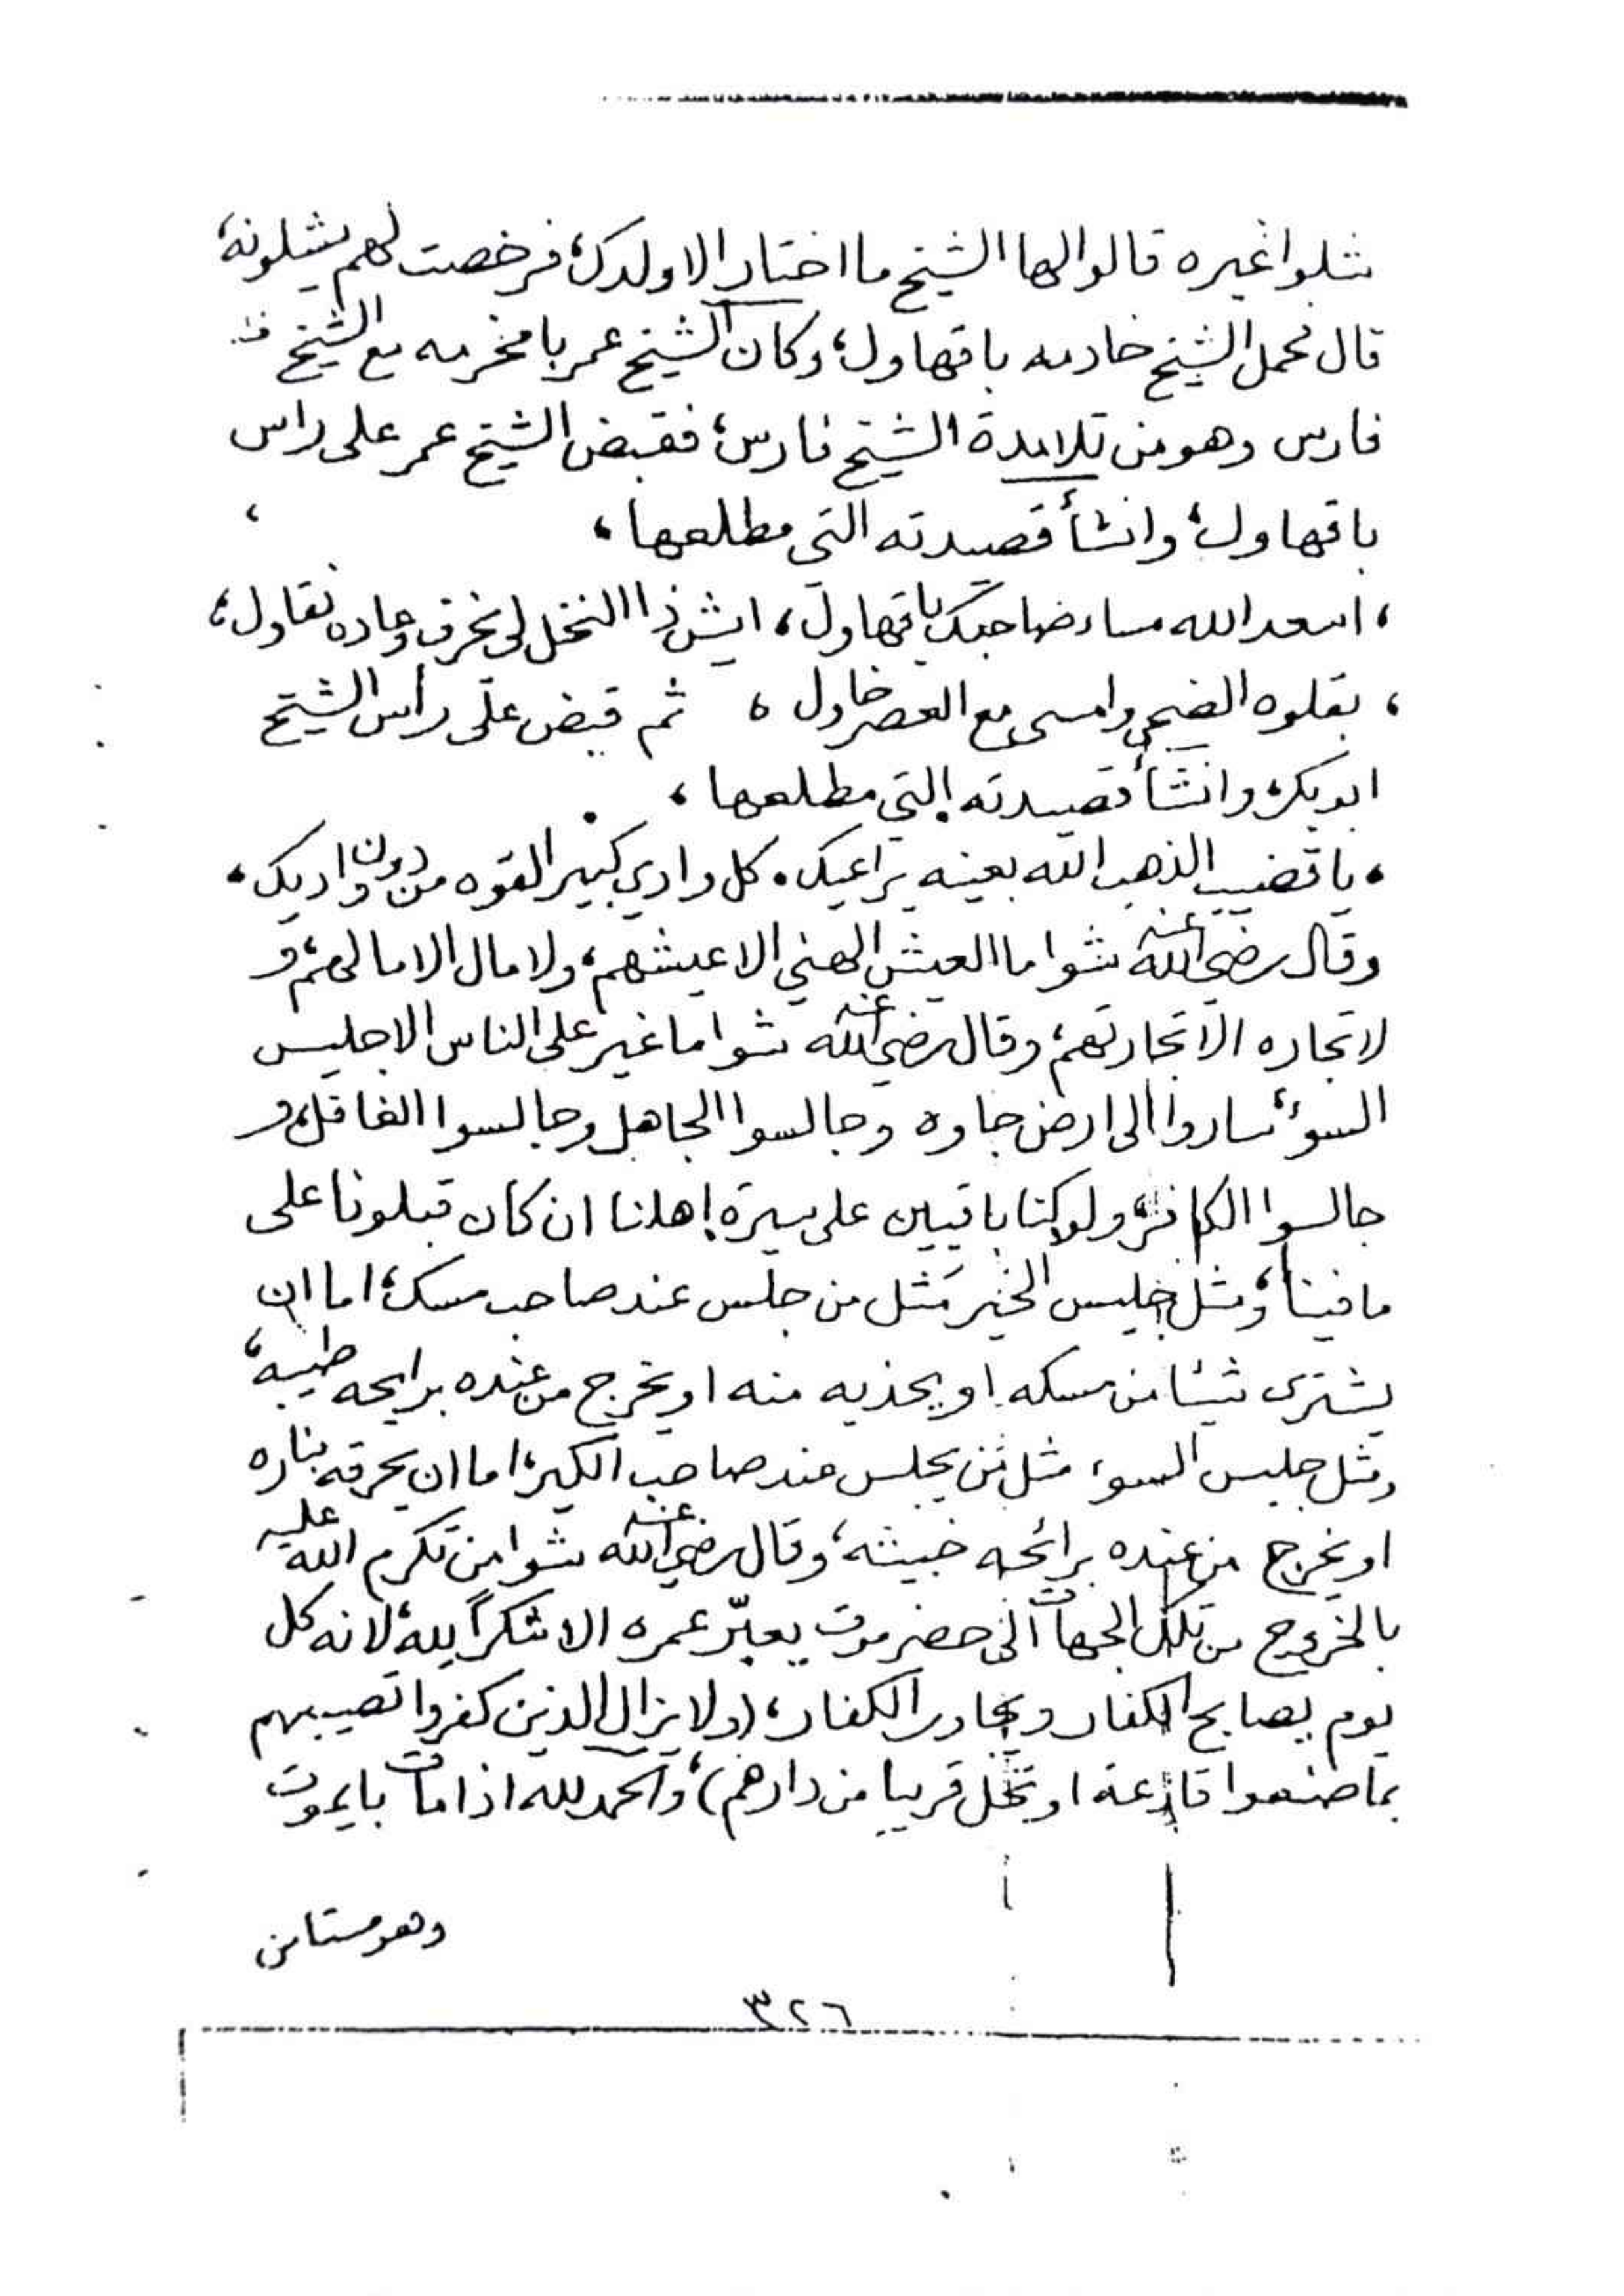 شلوا غيره قالوا لها الشيخ ما اختار الا ولدك، فرخصت لهم يشلونه،
قال محمل الشيخ خادمه باقهاول، وكان الشيخ عمر بامخرمه مع الشيخ
فارس وهو من تلامدة الشيخ فارس، فقبض الشيخ عمر على راس
باقهاول، وانشأ قصيدته التي مطلعها،
، اسعد الله مساء صاحبك باقهاول، ايش ذا النخل لى نخرف وعاده نقاول،
، بقلوه الضحى وامسى مع العصر خاول ، ثم قبض على رأس الشيخ
ابوبكر، وانشأ قصيدته التي مطلعها،
، يا قضيب الذهب الله بعينه يراعيك . كل وادي كبير القوه من دون واديك،
وقال رضي الله عنه شوا ما العيش الهني الا عيشهم، ولا مال الا مالهم، و
لا تجاره الا تجارتهم، وقال رضي الله عنه شوا ما غير على الناس الا جليس
السوء، ساروا الى ارض جاوه وجالسوا الجاهل وجالسوا الغافل، و
جالسوا الكافر، ولو كنا باقيين على سيرة اهلنا ان كان قبلونا على
ما فينا، ومثل جليس الخير مثل من جلس عند صاحب مسك، اما ان
يشترى شيئا من مسكه او يحذيه منه او يخرج من عنده برايحه طيبه،
ومثل جليس السوء مثل من يجلس عند صاحب الكير، اما ان يحرقه بناره
او يخرج من عنده برائحه خبيثه، وقال رضي الله عنه شوا من تكرم الله عليه
بالخروج من تلك الجهات الى حضرموت يعبّر عمره الا شكراً لله، لانه كل
يوم يصابح الكفار ويجاور الكفار، (ولا يزال الذين كفروا تصيبهم
بما صنعوا قارعة او تحل قريبا من دارهم)، والحمد لله اذا مات بايموت
وهو مستامن
٣٢٦